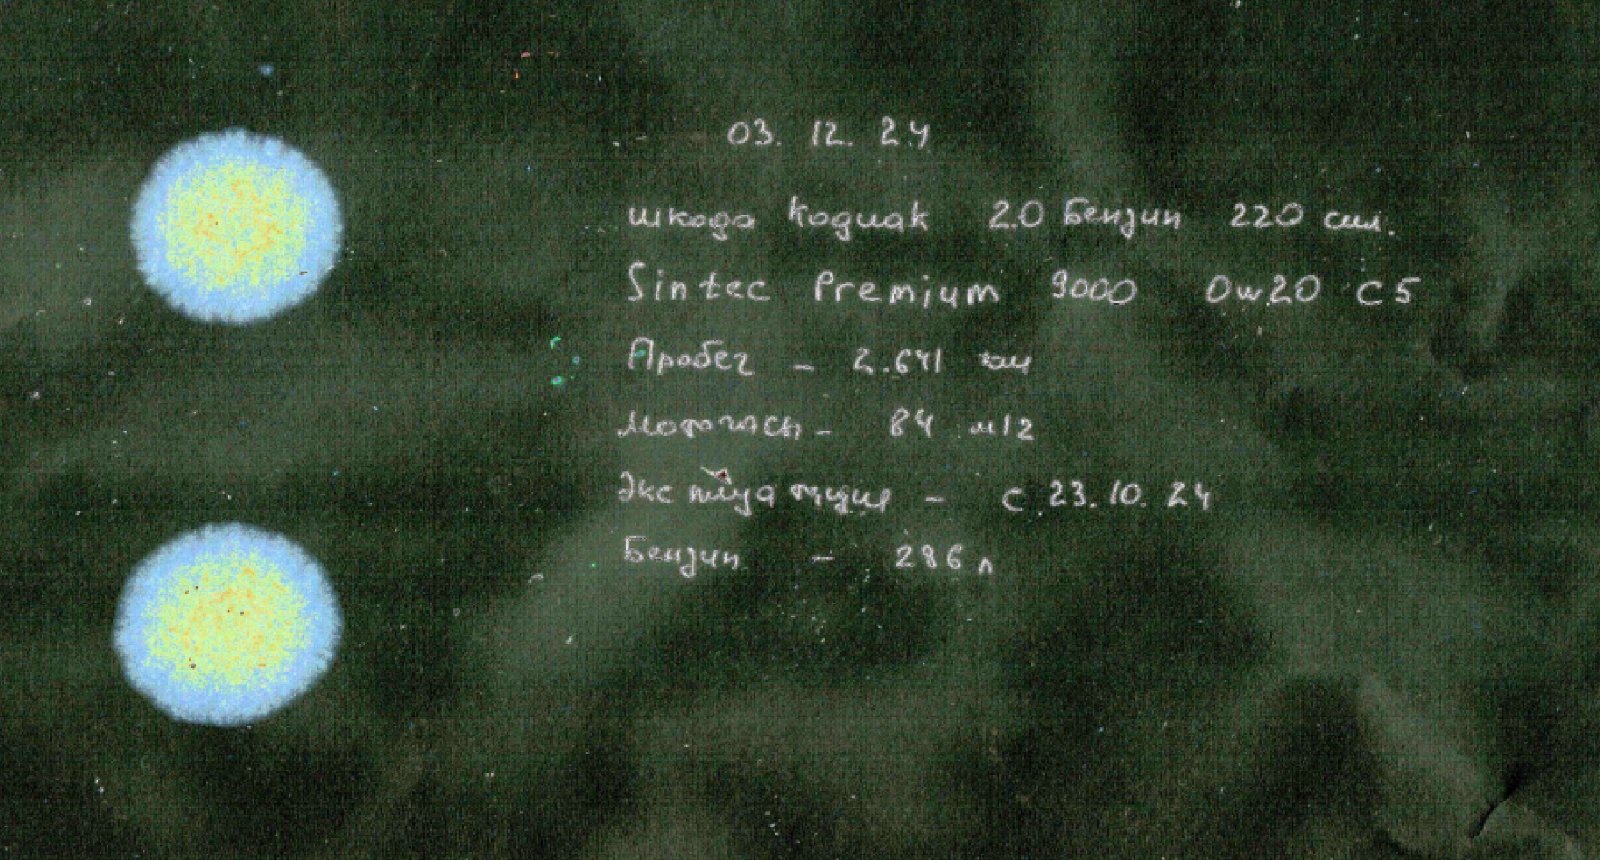 03. 12. 24
шкода kodiak 2.0 Бензин 220 сил.
Sintec Premium 9000 0w20 C5
Пробег - 2.641 км
Моточасы - 84 м/г
Эксплуатация - с 23.10.24
Бензин - 286 л